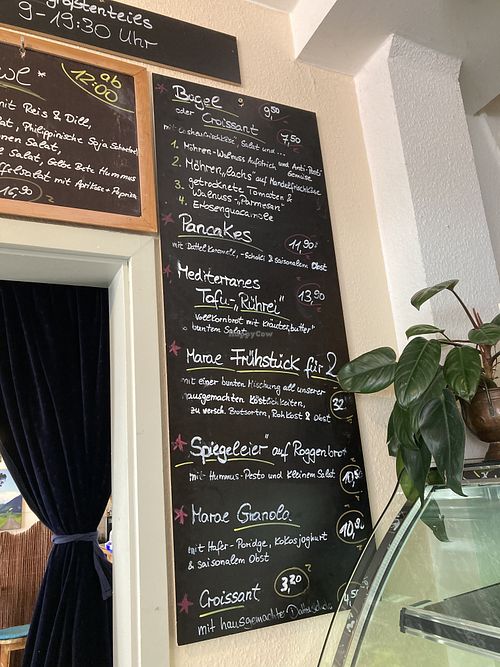 größtenteils
9-19:30 Uhr
ab
12:00
mit Reis & Dill,
Philippinische Soja
Salat,
Salat, Gelbe Bete Hummus
salat mit Aprikose + Paprika
Bagel 9,50
oder Croissant 7,50
mit Salat und...
1. Möhren-Walnuss Aufstrich und Anti-Pasti Gemüse
2. Möhren„lachs" auf Mandelfrischkäse
3. getrocknete Tomaten &
Walnuss-„Parmesan"
4. Erbsenguacamole
Pancakes 11,90
mit Dattel Karamell, -Schoki & saisonalem Obst
Mediterranes
Tofu-„Rührei" 13,90
Vollkornbrot mit Kräuter„butter"
& buntem Salat
HappyCow
Marae Frühstück für 2
mit einer bunten Mischung all unserer
hausgemachten Köstlichkeiten, 32
zu versch. Brotsorten, Rohkost & Obst
„Spiegeleier" auf Roggenbrot
mit Hummus-Pesto und kleinem Salat 10,50
Marae Granola
mit Hafer-Poridge, Kokosjoghurt 10,90
& saisonalem Obst
Croissant 3,20 4,50
mit hausgemachter